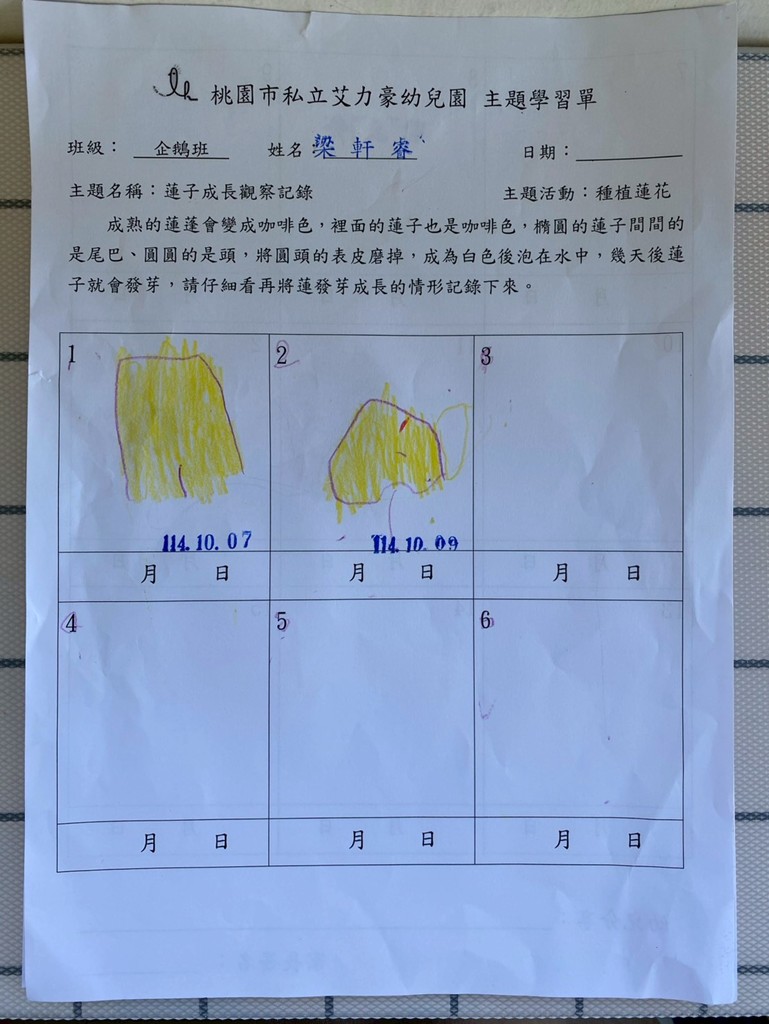 桃園市私立艾力豪幼兒園 主題學習單
班級： 企鵝班 姓名 梁軒睿 日期：
主題名稱：蓮子成長觀察記錄 主題活動：種植蓮花
成熟的蓮蓬會變成咖啡色，裡面的蓮子也是咖啡色，橢圓的蓮子間間的
是尾巴、圓圓的是頭，將圓頭的表皮磨掉，成為白色後泡在水中，幾天後蓮
子就會發芽，請仔細看再將蓮發芽成長的情形記錄下來。
1 2 3
114.10.07 114.10.09
月 日 月 日 月 日
4 5 6
月 日 月 日 月 日